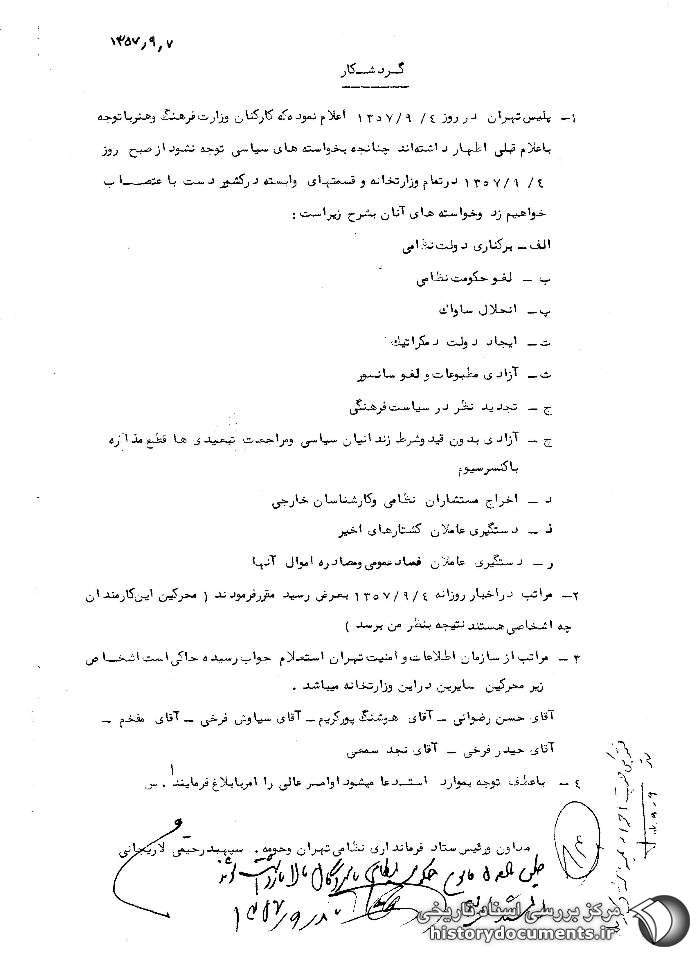 ۱۳۵۷ر۹ر۷
گردشکار
۱- پلیس تهران در روز ۱۳۵۷/۹/۴ اعلام نموده که کارکنان وزارت فرهنگ و هنر با توجه
باعلام قبلی اظهار داشته‌اند چنانچه بخواسته های سیاسی توجه نشود از صبح روز
۱۳۵۷/۹/۴ در تمام وزارتخانه و قسمتهای وابسته در کشور دست باعتصاب
خواهیم زد وخواسته های آنان بشرح زیر است :
الف - برکناری دولت نظامی
ب - لغو حکومت نظامی
پ - انحلال ساواک
ت - ایجاد دولت دمکراتیک
ث - آزادی مطبوعات و لغو سانسور
ج - تجدید نظر در سیاست فرهنگی
چ - آزادی بدون قید وشرط زندانیان سیاسی ومراجعت تبعیدی ها قطع مذاکره
باکنسرسیوم
د - اخراج مستشاران نظامی وکارشناسان خارجی
ذ - دستگیری عاملان کشتارهای اخیر
ر - دستگیری عاملان فساد عمومی ومصادره اموال آنها
۲- مراتب در اخبار روزانه ۱۳۵۷/۹/۴ بعرض رسید مقرر فرمودند ( محرکین این کارمندان
چه اشخاصی هستند نتیجه بنظر من برسد )
۳- مراتب از سازمان اطلاعات و امنیت تهران استعلام جواب رسیده حاکی است اشخاص
زیر محرکین سایرین در این وزارتخانه میباشد .
آقای حسن رضوانی - آقای هوشنگ پورکریم - آقای سیاوش فرخی - آقای مفخم -
آقای حیدر فرخی - آقای نجد سمعی
۴- باعطف توجه بموارد استدعا میشود اوامر عالی را امر بابلاغ فرمایند . س
معاون ورئیس ستاد فرمانداری نظامی تهران وحومه . سپهبد رحیمی لاریجانی
طبق ماده ۵ قانون حکومت نظامی نامبردگان بالا بازداشت شوند
۱۳۵۷ر۹ر
مرکز بررسی اسناد تاریخی
historydocuments.ir